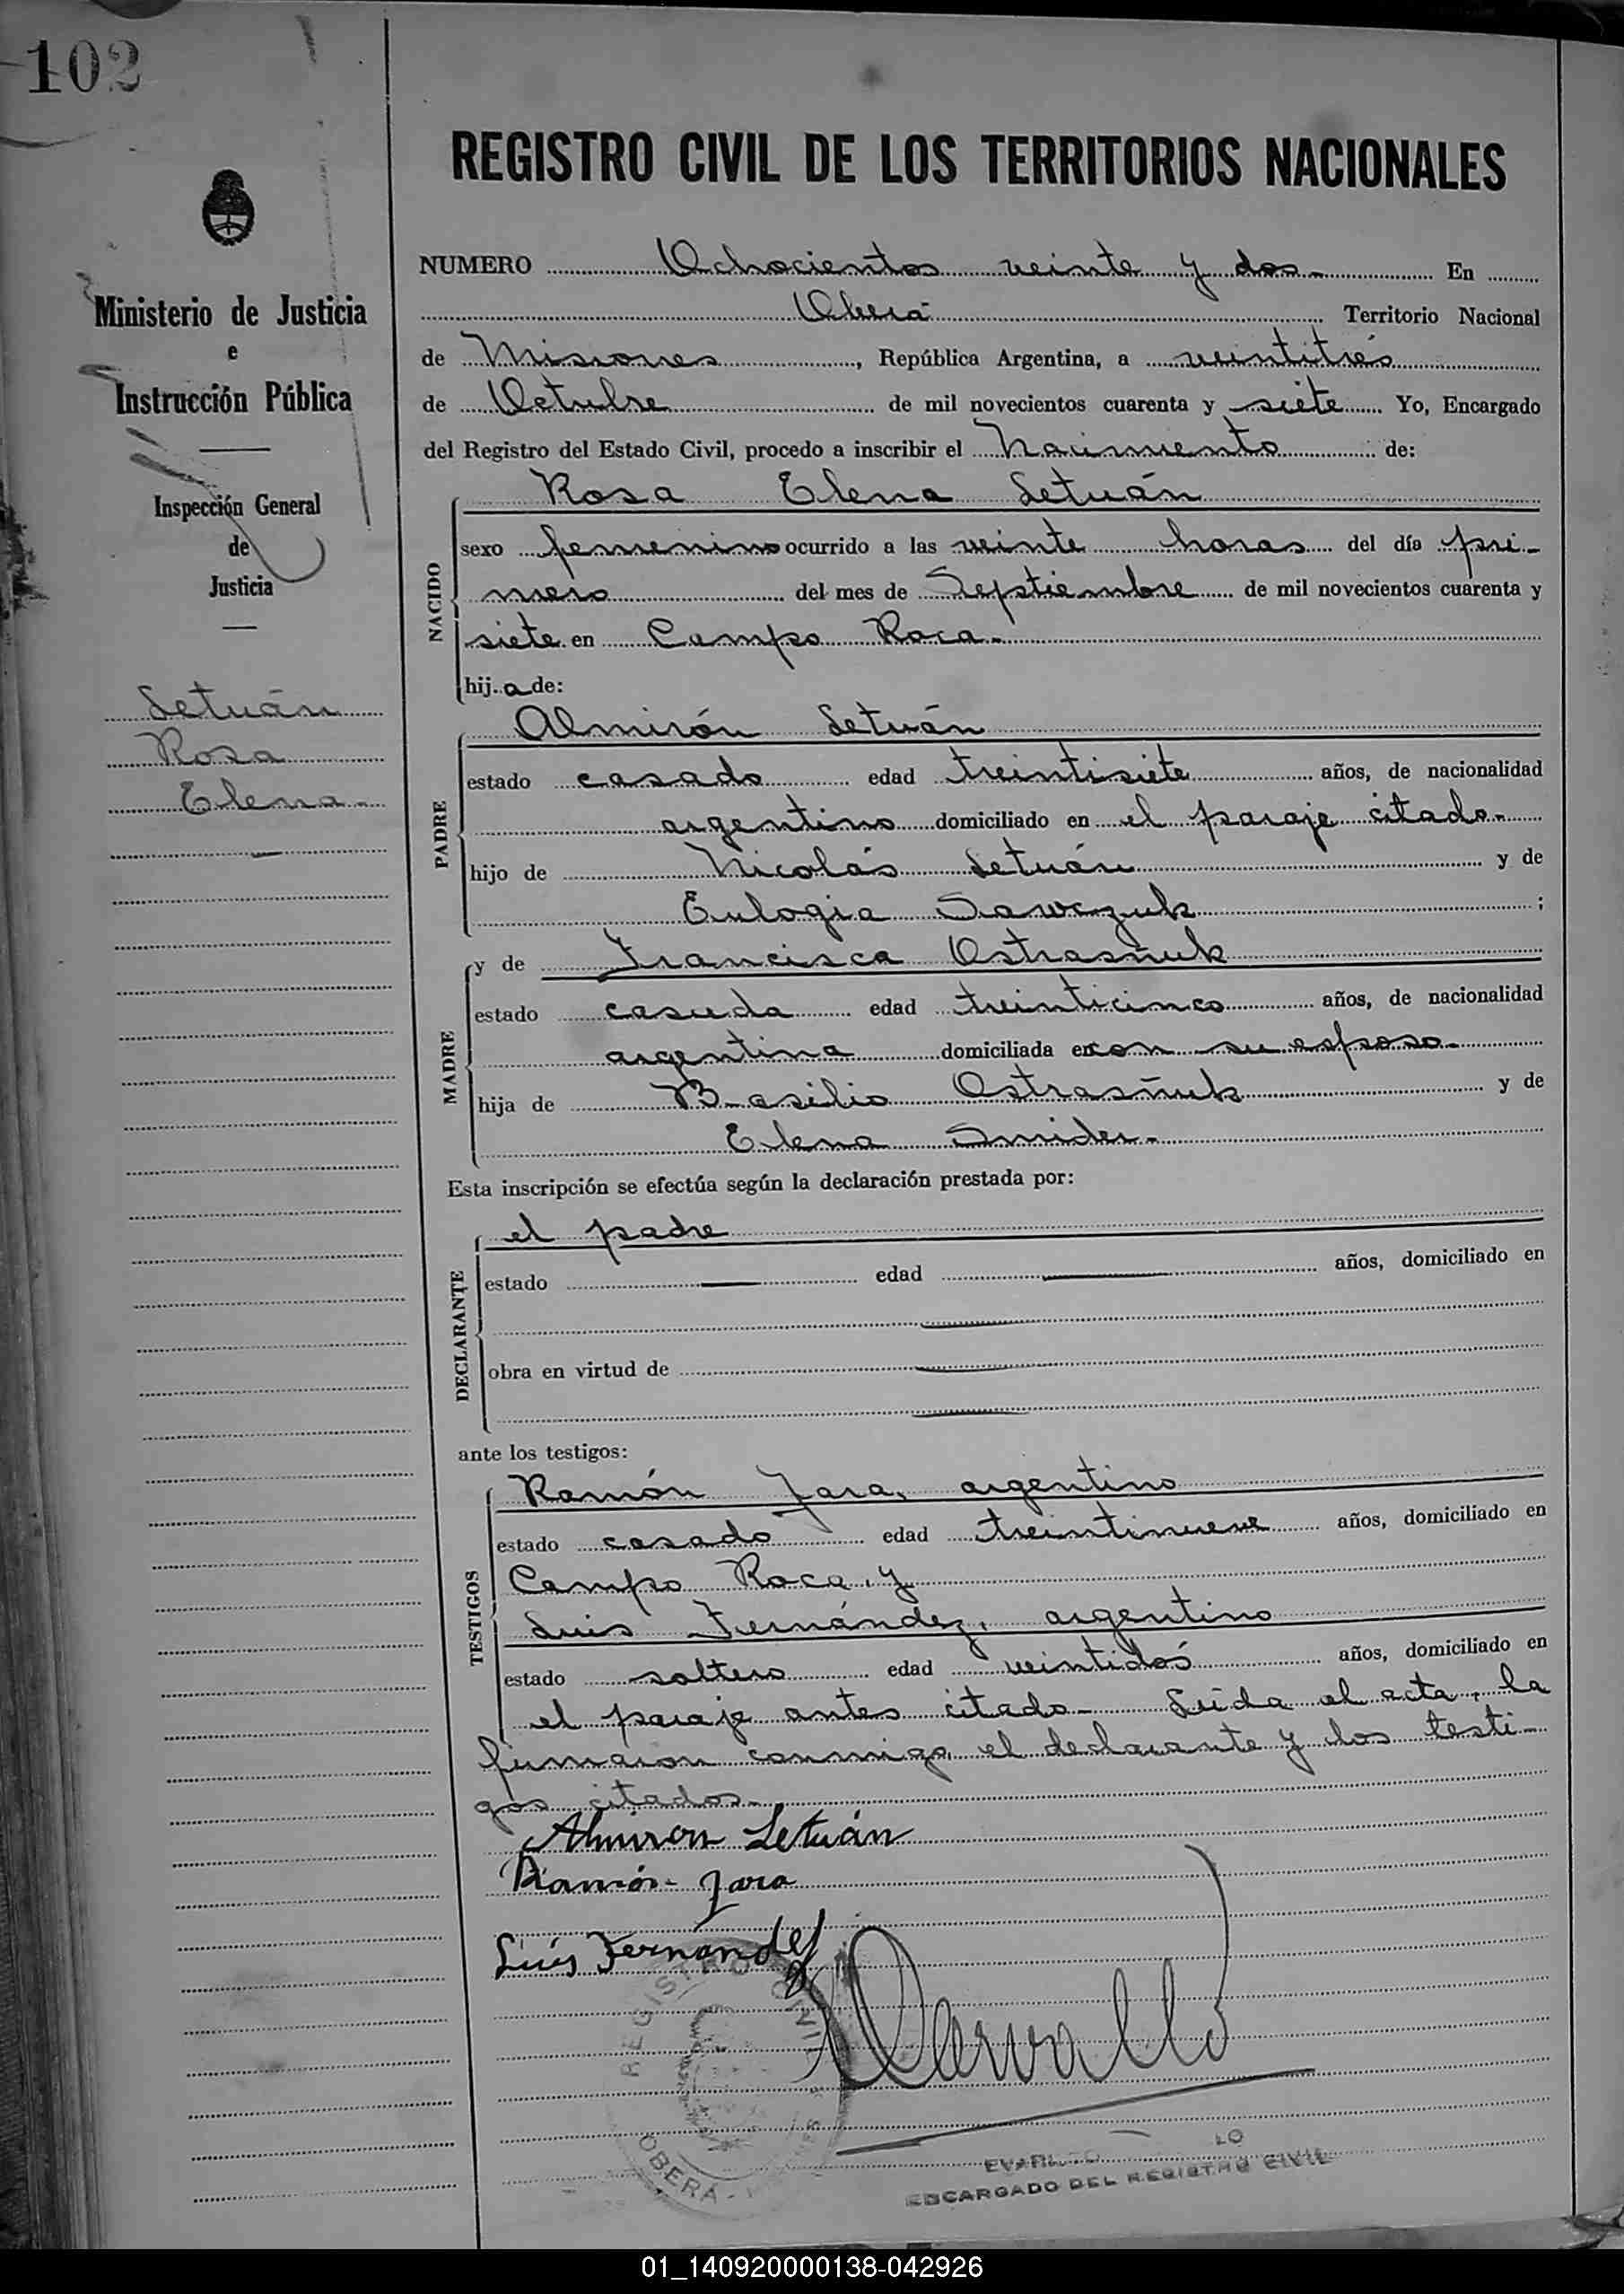 102
REGISTRO CIVIL DE LOS TERRITORIOS NACIONALES
Ministerio de Justicia
e
Instrucción Pública
Inspección General
de
Justicia
Letuán
Rosa
Elena-
NUMERO Ochocientos veinte y dos- En
Oberá Territorio Nacional
de Misiones, República Argentina, a veintitrés
de Octubre de mil novecientos cuarenta y siete Yo, Encargado
del Registro del Estado Civil, procedo a inscribir el Nacimiento de:
NACIDO
Rosa Elena Letuán
sexo femenino ocurrido a las veinte horas del día pri-
mero del mes de Septiembre de mil novecientos cuarenta y
siete en Campo Roca-
hij a de:
PADRE
Almirón Letuán
estado casado edad treintisiete años, de nacionalidad
argentino domiciliado en el paraje citado-
hijo de Nicolás Letuán y de
Eulogia Sawczuk ;
MADRE
y de Francisca Ostrasñuk
estado casada edad treinticinco años, de nacionalidad
argentina domiciliada en con su esposo-
hija de Basilio Ostrasñuk y de
Elena Smider-
Esta inscripción se efectúa según la declaración prestada por:
DECLARANTE
el padre
estado — edad — años, domiciliado en
obra en virtud de —
ante los testigos:
TESTIGOS
Ramón Jara, argentino
estado casado edad treintinueve años, domiciliado en
Campo Roca, y
Luis Fernández, argentino
estado soltero edad veintidós años, domiciliado en
el paraje antes citado- Leída el acta, la
firmaron conmigo, el declarante y los testi-
gos citados-
Almiron Letuán
Ramón Jara
Luís Fernández
REGISTRO CIVIL
OBERÁ -
ENCARGADO DEL REGISTRO CIVIL
01_140920000138-042926